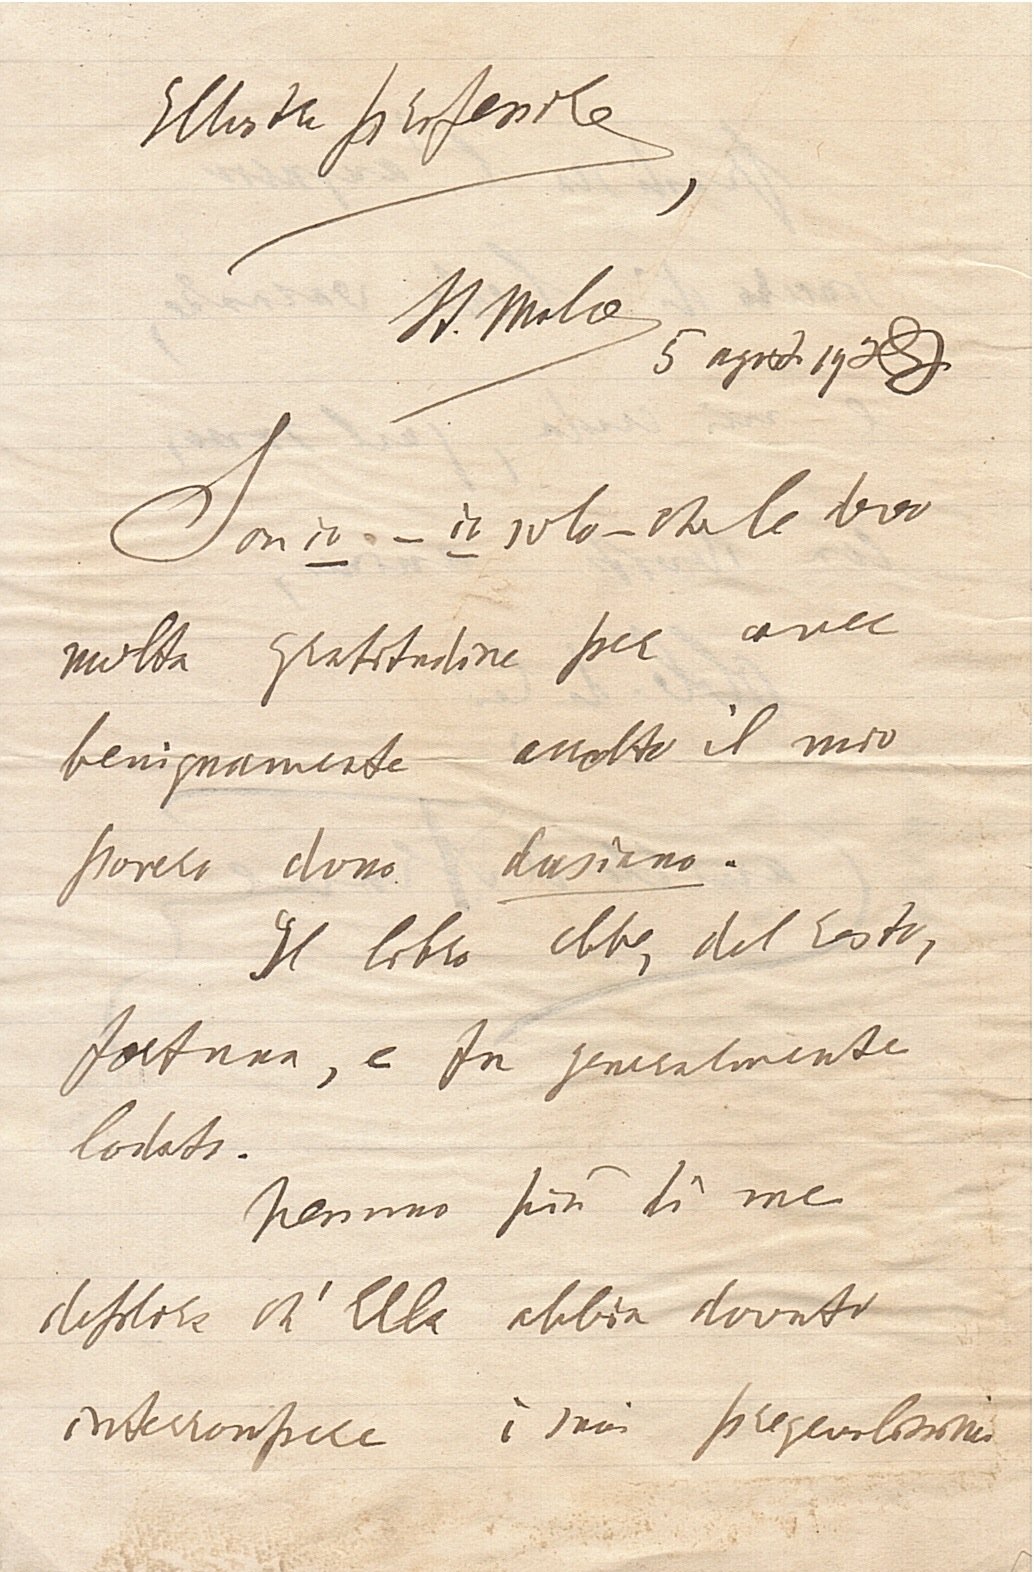 Illustre professore,
St. Malo
5 agosto 192
Son io – io solo – che le devo
molta gratitudine per aver
benignamente accolto il mio
povero dono dusiano.
Il libro ebbe, del resto,
fortuna, e fu generalmente
lodato.
Nessuno più di me
deplora ch'Ella abbia dovuto
interrompere i suoi pregevolissimi